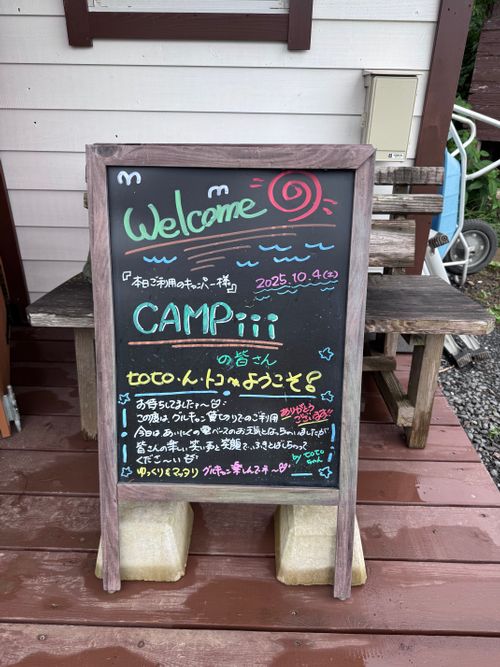 Welcome
『本日ご利用のキャンパー様』
2025.10.4(土)
CAMPiii
の皆さん
toto・ん・トコへようこそ!
お待ちしてましたァ〜
この度は、グルキャン貸切りでのご利用
ありがとうございます!!
今日はあいにくの電べースのお天気となっちゃいましたが
皆さんの楽しい笑い声と笑顔で…ふきとばしちゃって
くださ〜い
by totoちゃん
ゆっくり&マッタリ グルキャン楽しんでネ〜